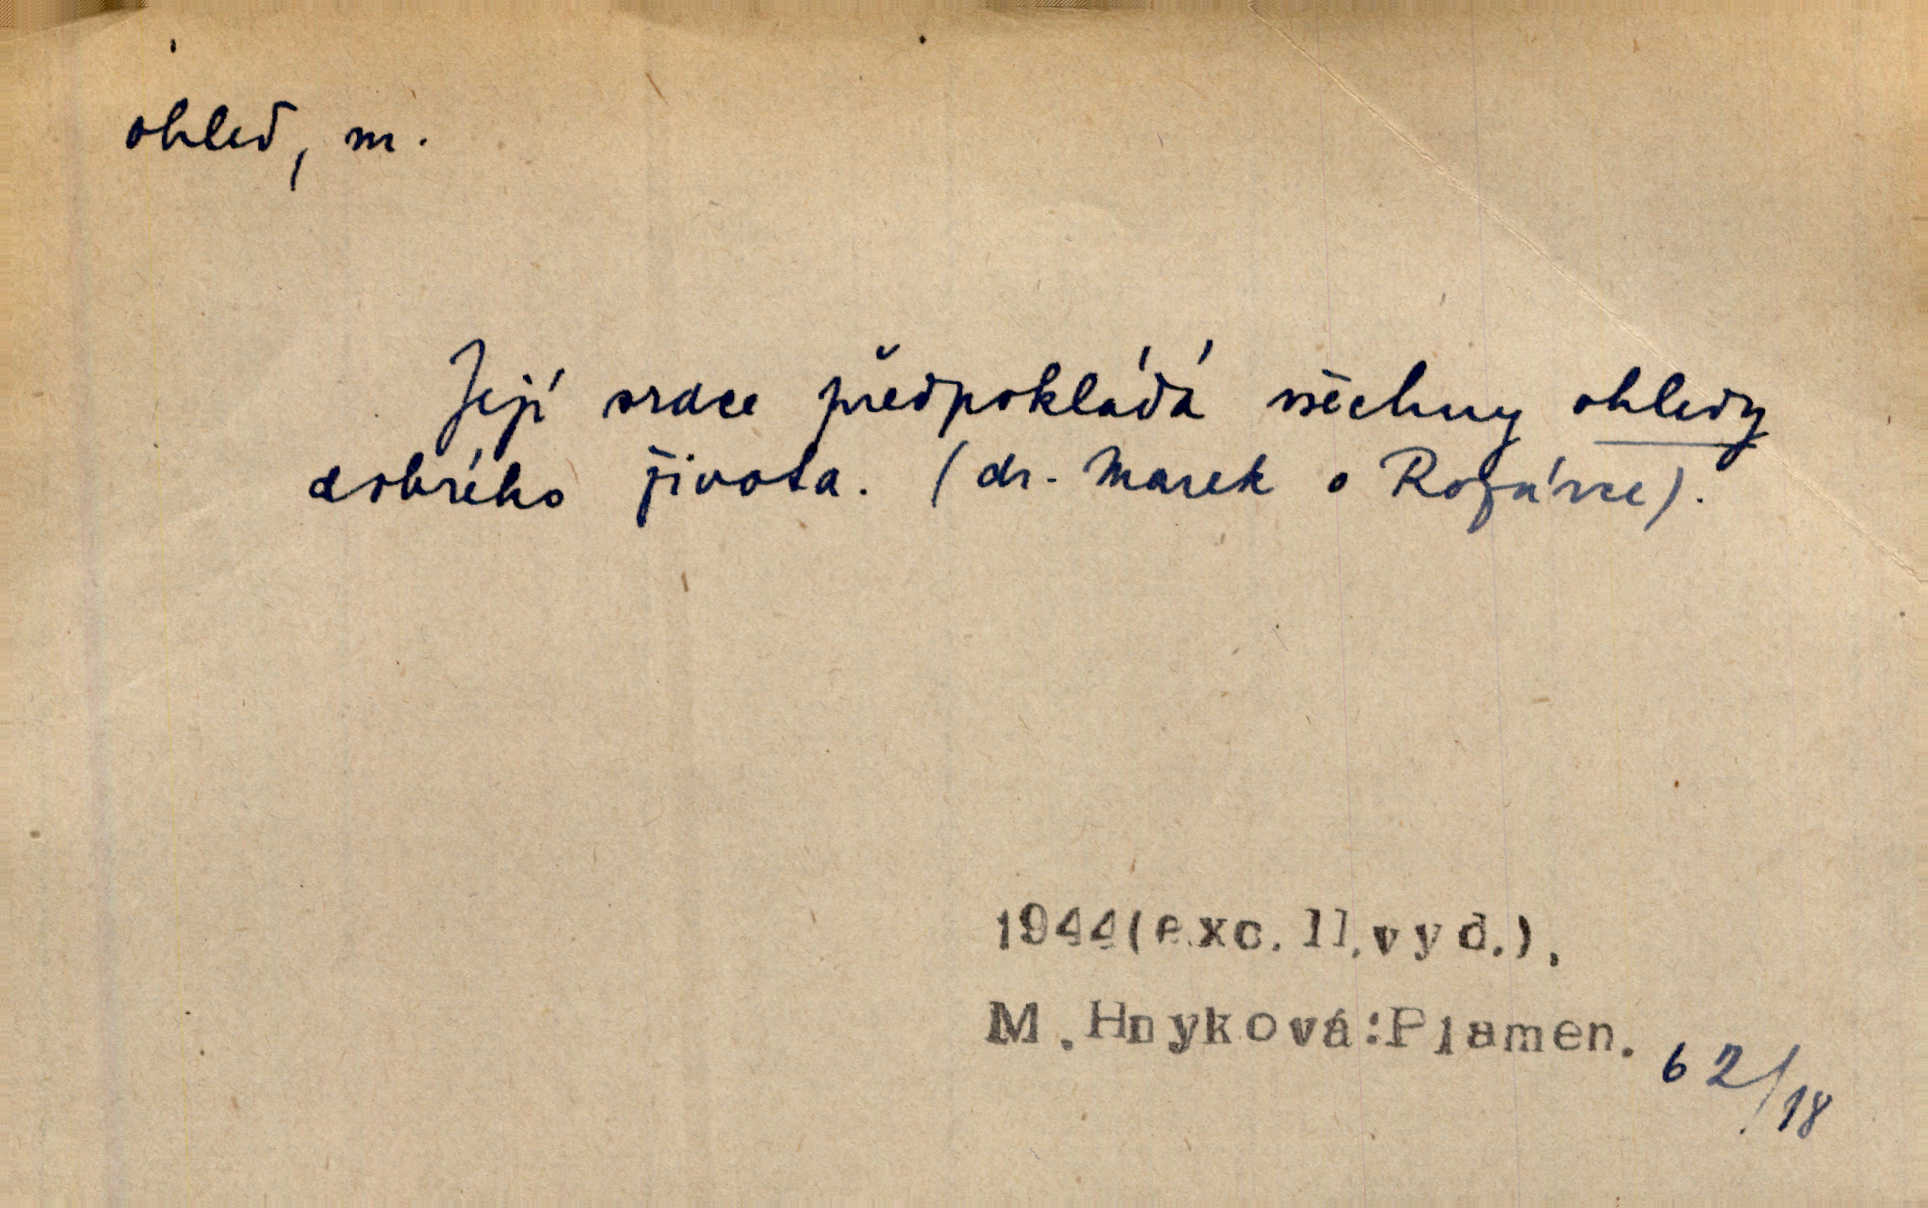 ohled, m.
Její srdce předpokládá všechny ohledy
dobrého života. (dr. Marek o Rozárce).
1944(exc.II.vyd.),
M.Hnyková:Plamen. 62/18